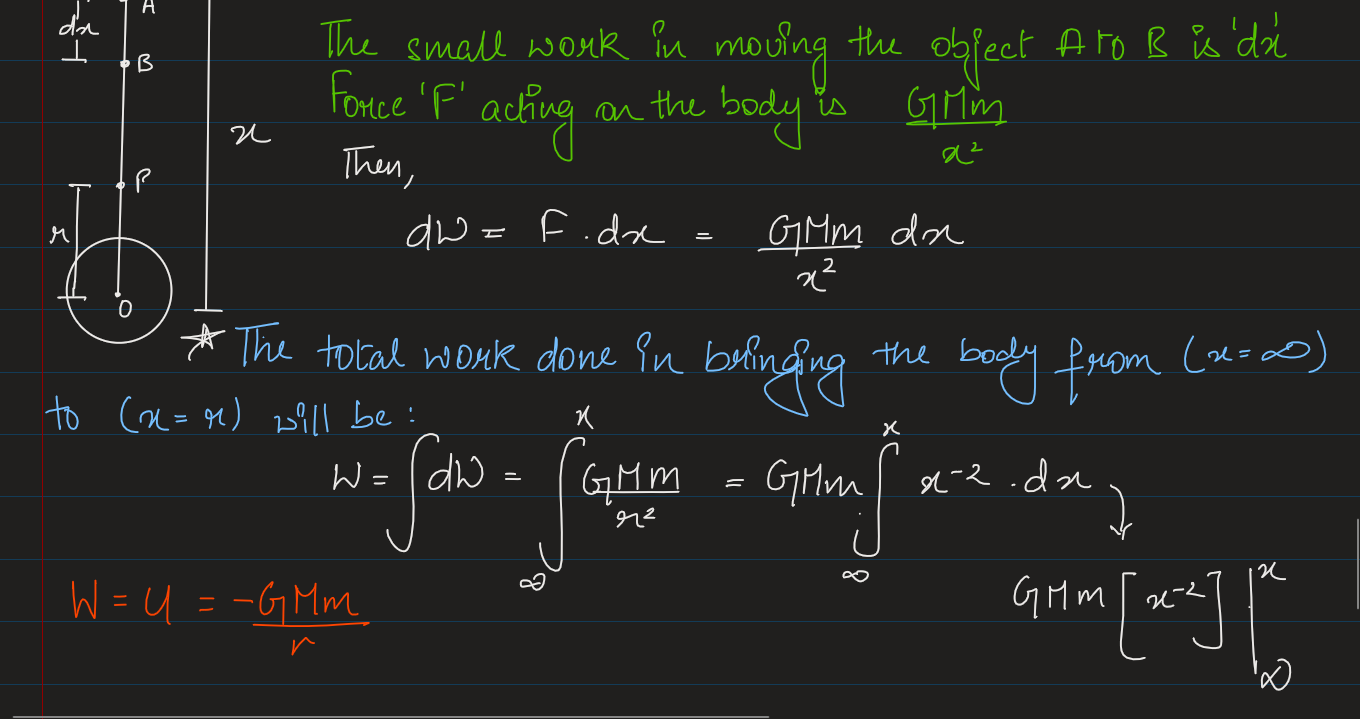 dx
A
The small work in moving the object A to B is 'dx'
B
Force 'F' acting on the body is GMm/x²
x
Then,
P
r
dW = F . dx = GMm/x² dx
O
☆ The total work done in bringing the body from (x = ∞)
to (x = r) will be :
W = ∫dW = ∫_∞^x GMm/r² = GMm ∫_∞^x x⁻² . dx
W = U = -GMm/r
GMm [x⁻²] |_∞^x